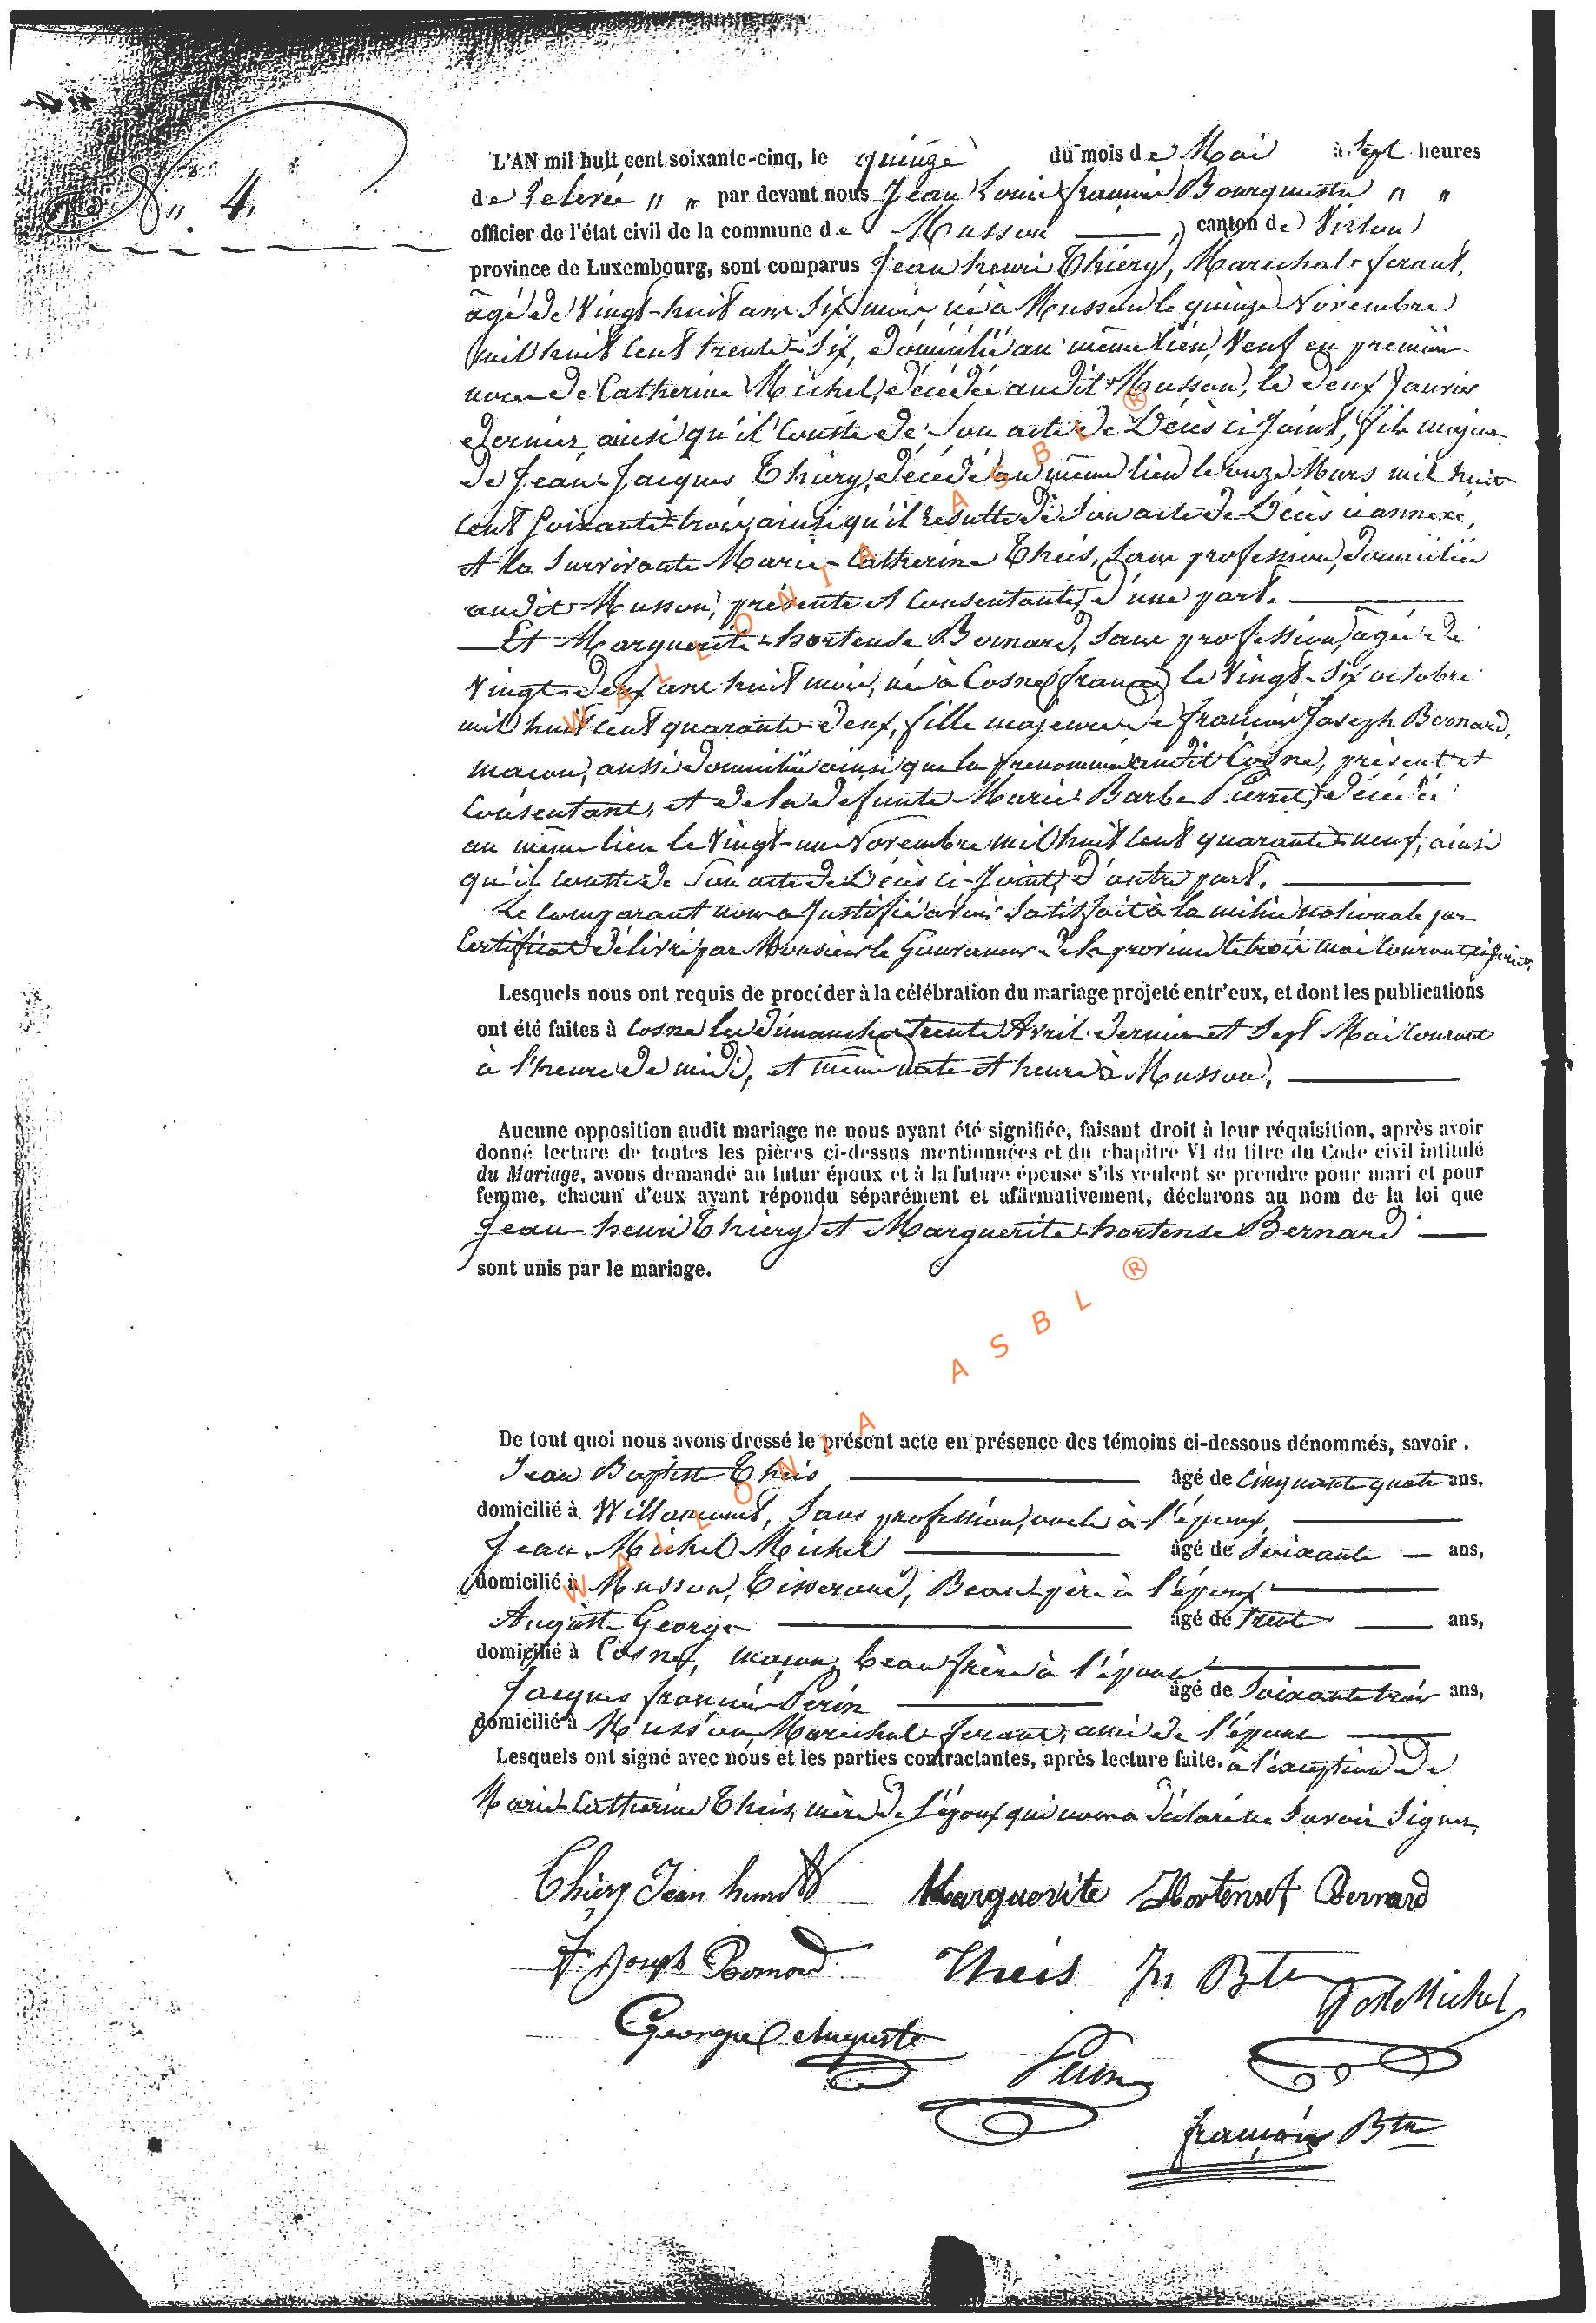 N° 4.
L'AN mil huit cent soixante-cinq, le quinze du mois de Mai à sept heures
de relevée " " par devant nous Jean Louis françois Bourgmestre " "
officier de l'état civil de la commune de Musson canton de Virton
province de Luxembourg, sont comparus Jean henri Thiéry, Maréchal-ferant,
âgé de Vingt-huit ans Six mois, né à Musson le quinze Novembre
mil huit cent trente-Six, domicilié au même lieu, Veuf en première
noce de Catherine Michel, décédée audit Musson, le deux Janvier
dernier, ainsi qu'il Conste de Son acte de Décès ci Joint, fils majeur
de Jean-Jacques Thiéry, décédé au même lieu le onze Mars mil huit
cent Soixante-trois, ainsi qu'il résulte de Son acte de Décès ci annexé,
et la Survivante Marie-Catherine Theis, Sans profession, domiciliée
audit Musson, présente et Consentante, d'une part.
Et Marguerite-hortense Bernard, Sans profession, âgée de
Vingt-deux ans huit mois, née à Cosne (france) le Vingt-Six octobre
mil huit cent quarante-deux, fille majeure de françois Joseph Bernard,
maçon, aussi domicilié ainsi que la prénommée audit Cosne, présent et
Consentant, et de la défunte Marie Barbe Pierret, décédée
au même lieu le Vingt-un Novembre mil huit cent quarante-neuf, ainsi
qu'il conste de Son acte de Décès ci-Joint, d'autre part.
Le Comparant nous a Justifié avoir Satisfait à la milice nationale par
Certificat délivré par Monsieur le Gouverneur de la province le trois mai Courant, ci joint.
Lesquels nous ont requis de procéder à la célébration du mariage projeté entr'eux, et dont les publications
ont été faites à Cosne les dimanches trente Avril dernier et Sept Mai Courant
à l'heure de midi, et même date et heure à Musson.
Aucune opposition audit mariage ne nous ayant été signifiée, faisant droit à leur réquisition, après avoir
donné lecture de toutes les pièces ci-dessus mentionnées et du chapitre VI du titre du Code civil intitulé
du Mariage, avons demandé au futur époux et à la future épouse s'ils veulent se prendre pour mari et pour
femme, chacun d'eux ayant répondu séparément et affirmativement, déclarons au nom de la loi que
Jean-henri Thiéry et Marguerite-hortense Bernard
sont unis par le mariage.
De tout quoi nous avons dressé le présent acte en présence des témoins ci-dessous dénommés, savoir.
Jean Baptiste Theis âgé de Cinquante quatre ans,
domicilié à Willancourt, Sans profession, oncle à l'époux,
Jean-Michel Michel âgé de Soixante ans,
domicilié à Musson, Tisserand, Beau-père à l'époux
Auguste George âgé de trente ans,
domicilié à Cosne, maçon, beau frère à l'épouse
Jacques françois Perin âgé de Soixante trois ans,
domicilié à Musson, Maréchal-ferant, ami de l'époux
Lesquels ont signé avec nous et les parties contractantes, après lecture faite. à l'exception de
Marie-Catherine Theis, mère de l'époux qui nous a déclaré ne Savoir Signer.
Thiery Jean henri Marguerite Hortense Bernard
F. Joseph Bernard Theis Jn Bte Michel
George Auguste
Perin
françois Bte
WALLONIA ASBL ®
WALLONIA ASBL ®